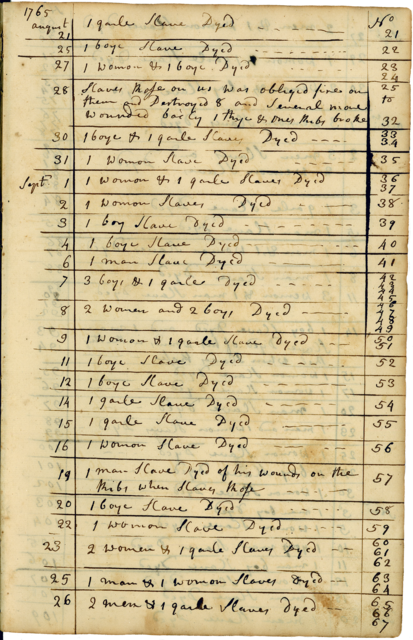 1765 No
august 21 1 garle Slave Dyed 21
25 1 boye Slave Dyed 22
27 1 woman & 1 boye Dyed 23 24
28 Slaves Rose on us was obliged fire on 25
them and Destroyed 8 and Several more to
wounded badly 1 Thye & ones Ribs broke 32
30 1 boye & 1 garle Slaves Dyed 33 34
31 1 woman Slave Dyed 35
Sept 1 1 woman & 1 garle Slaves Dyed 36 37
2 1 woman Slaves Dyed 38
3 1 boy Slave Dyed 39
4 1 boye Slave Dyed 40
6 1 man Slave Dyed 41
7 3 boys & 1 garle Dyed 42 43 44 45
8 2 women and 2 boys Dyed 46 47 48 49
9 1 woman & 1 garle Slave Dyed 50 51
11 1 boye Slave Dyed 52
12 1 boye Slave Dyed 53
14 1 garle Slave Dyed 54
15 1 garle Slave Dyed 55
16 1 woman Slave Dyed 56
19 1 man Slave Dyed of his wounds on the 57
Ribs when Slaves Rose
20 1 boye Slave Dyed 58
22 1 woman Slave Dyed 59
23 2 women & 1 garle Slaves Dyed 60 61 62
25 1 man & 1 woman Slaves Dyed 63 64
26 2 men & 1 garle Slaves Dyed 65 66 67